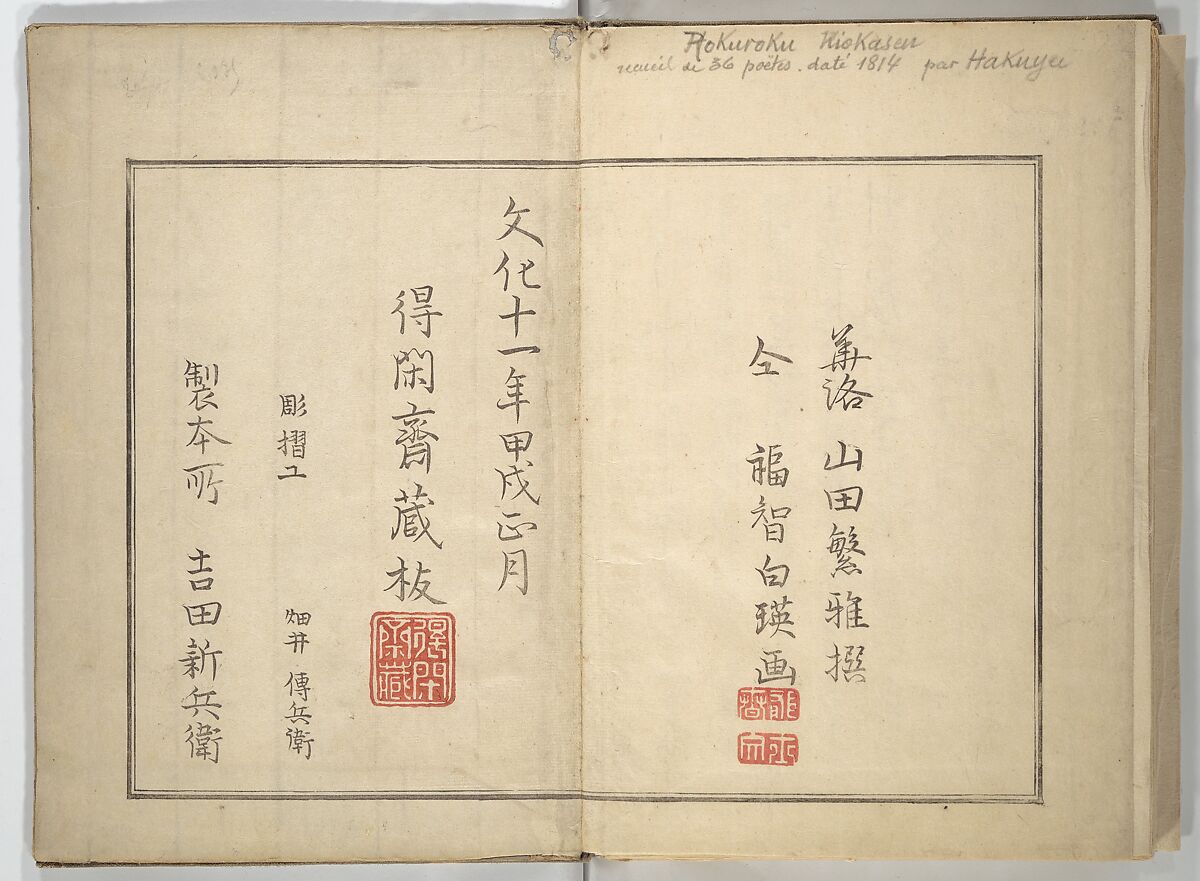 Rokuroku Kiokasen
recueil de 36 poëtes. daté 1814 par Hakuyei
華洛 山田繁雅撰
仝 福智白瑛画
文化十一年甲戌正月
得閑齋蔵板
得閑齋藏
彫摺工 畑井傳兵衛
製本所 吉田新兵衛